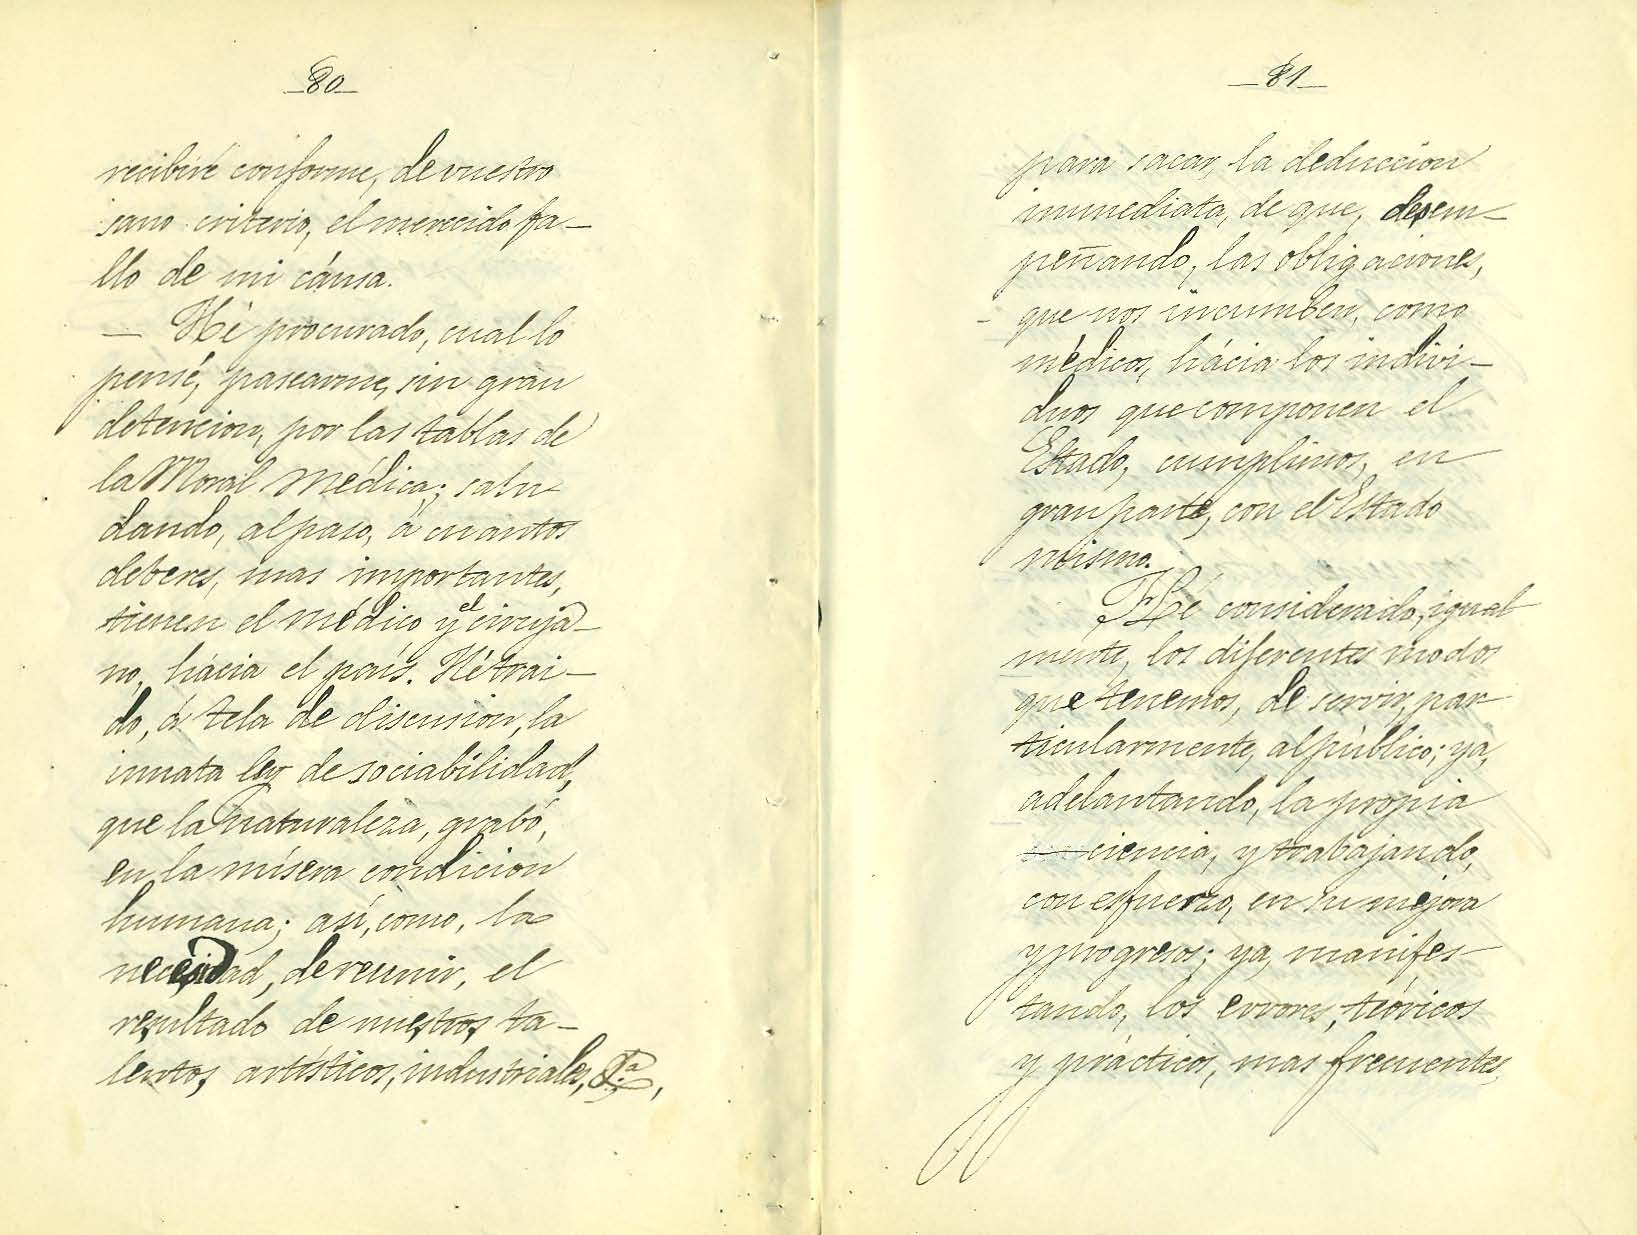 80
recibiré conforme, de vuestro
sano criterio, el merecido fa-
llo de mi cáusa.
— Hé procurado, cual lo
pensé, pasearme, sin gran
detencion, por las tablas de
la Moral médica; salu-
dando, al paso, á cuantos
deberes, mas importantes,
tienen el médico y el ciruja-
no, hácia el país. Hé trai-
do, á tela de discusion, la
innata ley de sociabilidad,
que la naturaleza, grabó,
en la mísera condicion
humana; así, como, la
necesidad, de reunir, el
resultado de nuestros ta-
lentos, artísticos, industriales, &.a,
81
para sacar, la deduccion
inmediata, de que, desem-
peñando, las obligaciones,
que nos incumben, como
médicos, hácia los indivi-
duos que componen el
Estado, cumplimos, en
gran parte, con el Estado
mismo.
Hé considerado, igual-
mente, los diferentes modos
que tenemos, de servir, par-
ticularmente, al público; ya,
adelantando, la propia
ciencia, y trabajando,
con esfuerzo, en su mejora
y progresos; ya, manifes-
tando, los errores, teóricos
y prácticos, mas frecuentes,